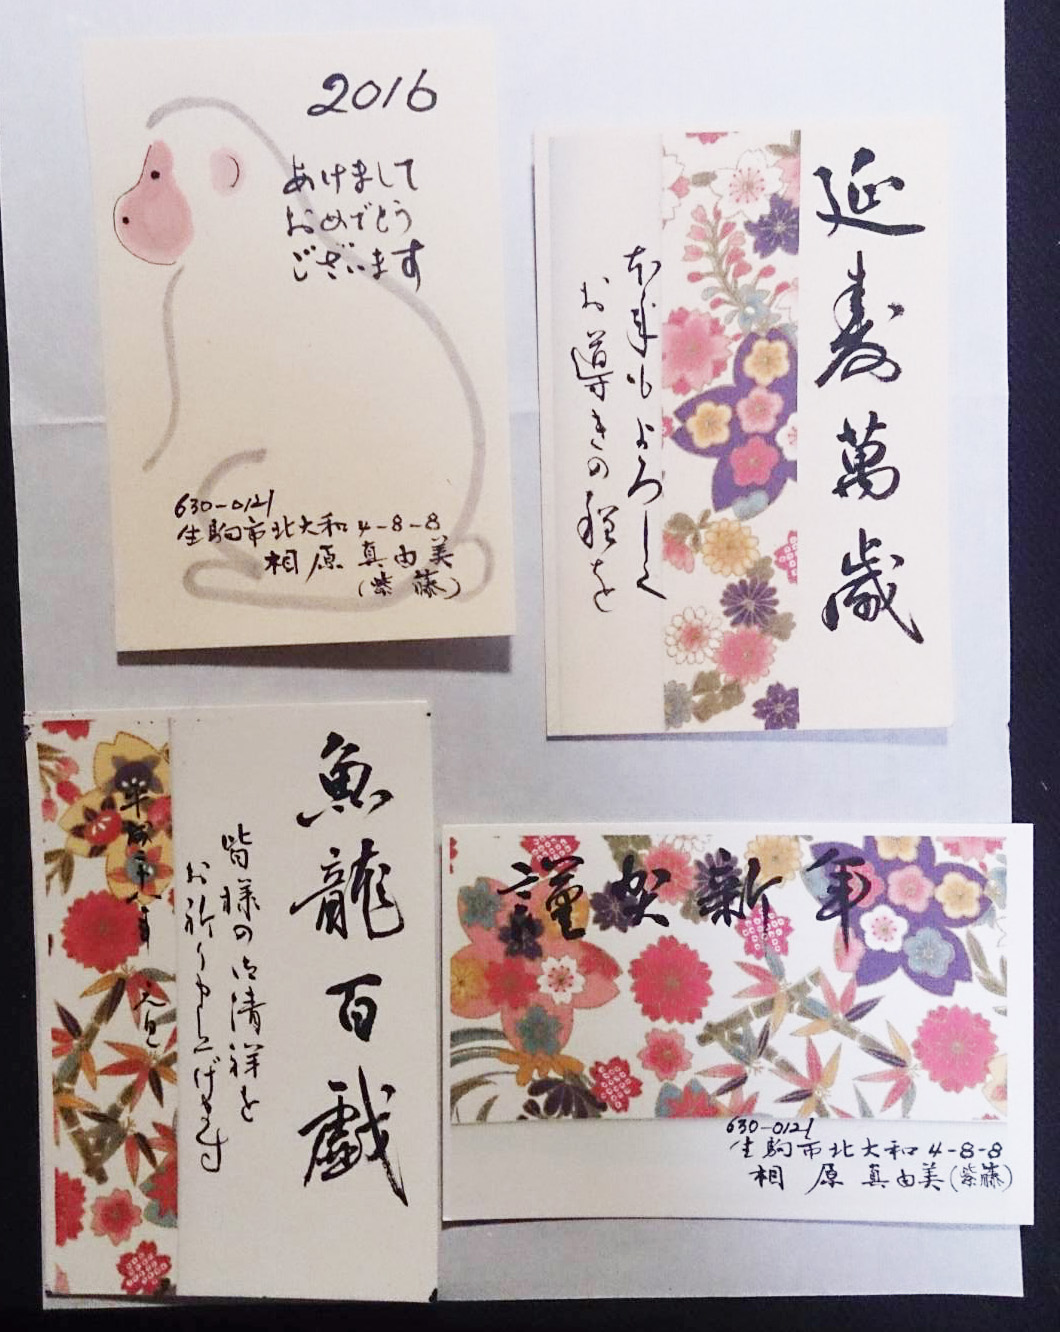 2016
あけまして
おめでとう
ございます
630-0121
生駒市北大和4-8-8
相原 真由美
(紫藤)
延寿萬歳
本年もよろしく
お導きの程を
魚龍百戯
皆様の御清祥を
お祈り申し上げます
平成廿八年 元旦
謹賀新年
630-0121
生駒市北大和4-8-8
相原 真由美(紫藤)